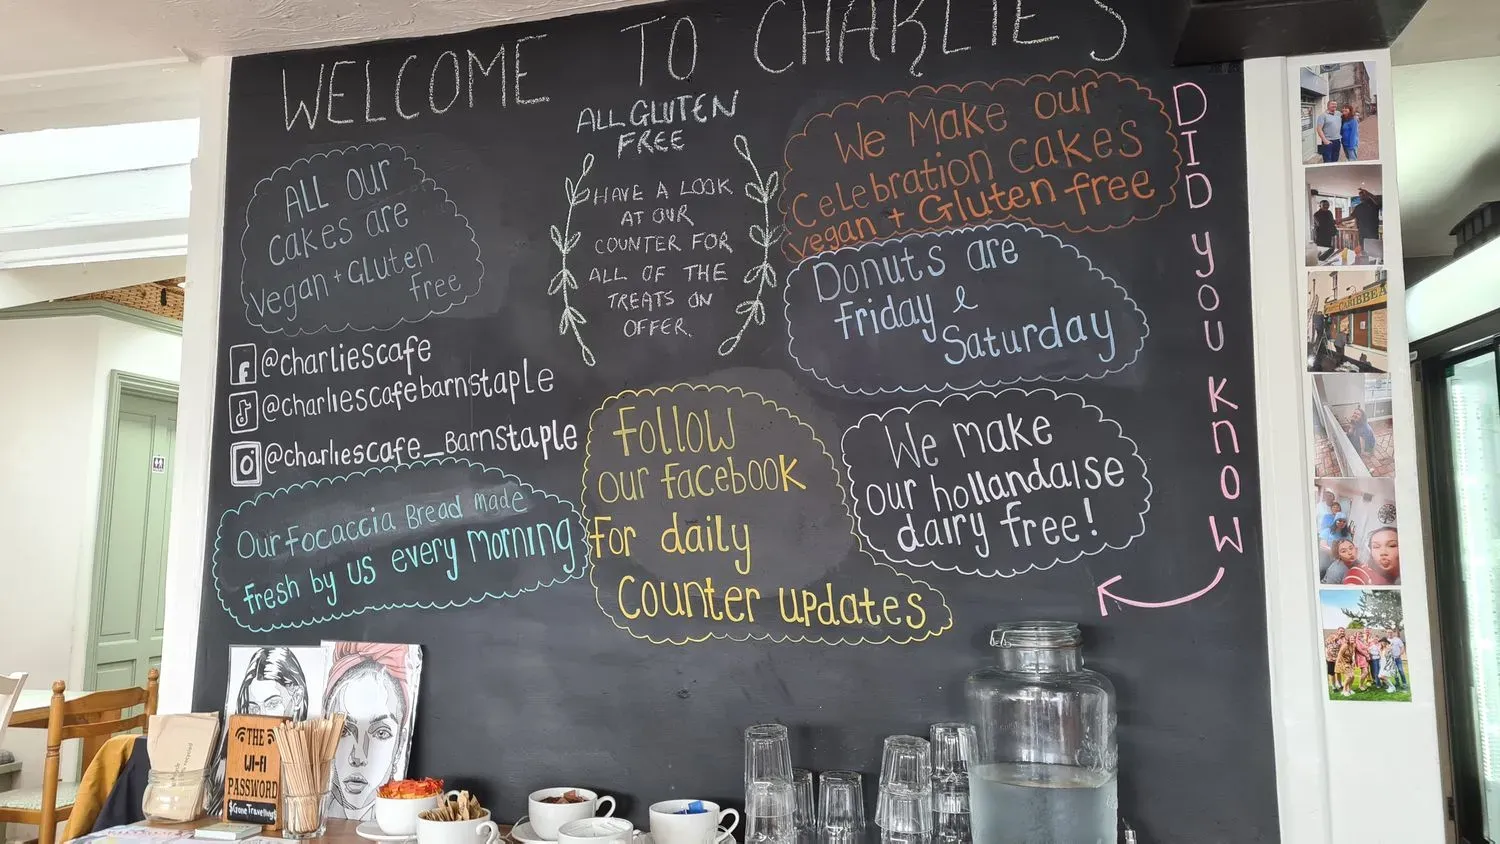 WELCOME TO CHARLIE'S
ALL GLUTEN
FREE
HAVE A LOOK
AT OUR
COUNTER FOR
ALL OF THE
TREATS ON
OFFER.
ALL our
cakes are
vegan + Gluten
free
We Make our
Celebration cakes
vegan + Gluten free
Donuts are
friday &
Saturday
DID you KnoW
@charliescafe
@charliescafebarnstaple
@charliescafe_Barnstaple
Our Focaccia Bread made
fresh by us every morning
Follow
our facebook
For daily
Counter updates
We make
our hollandaise
dairy free!
THE
WI-FI
PASSWORD
CARIBBEA